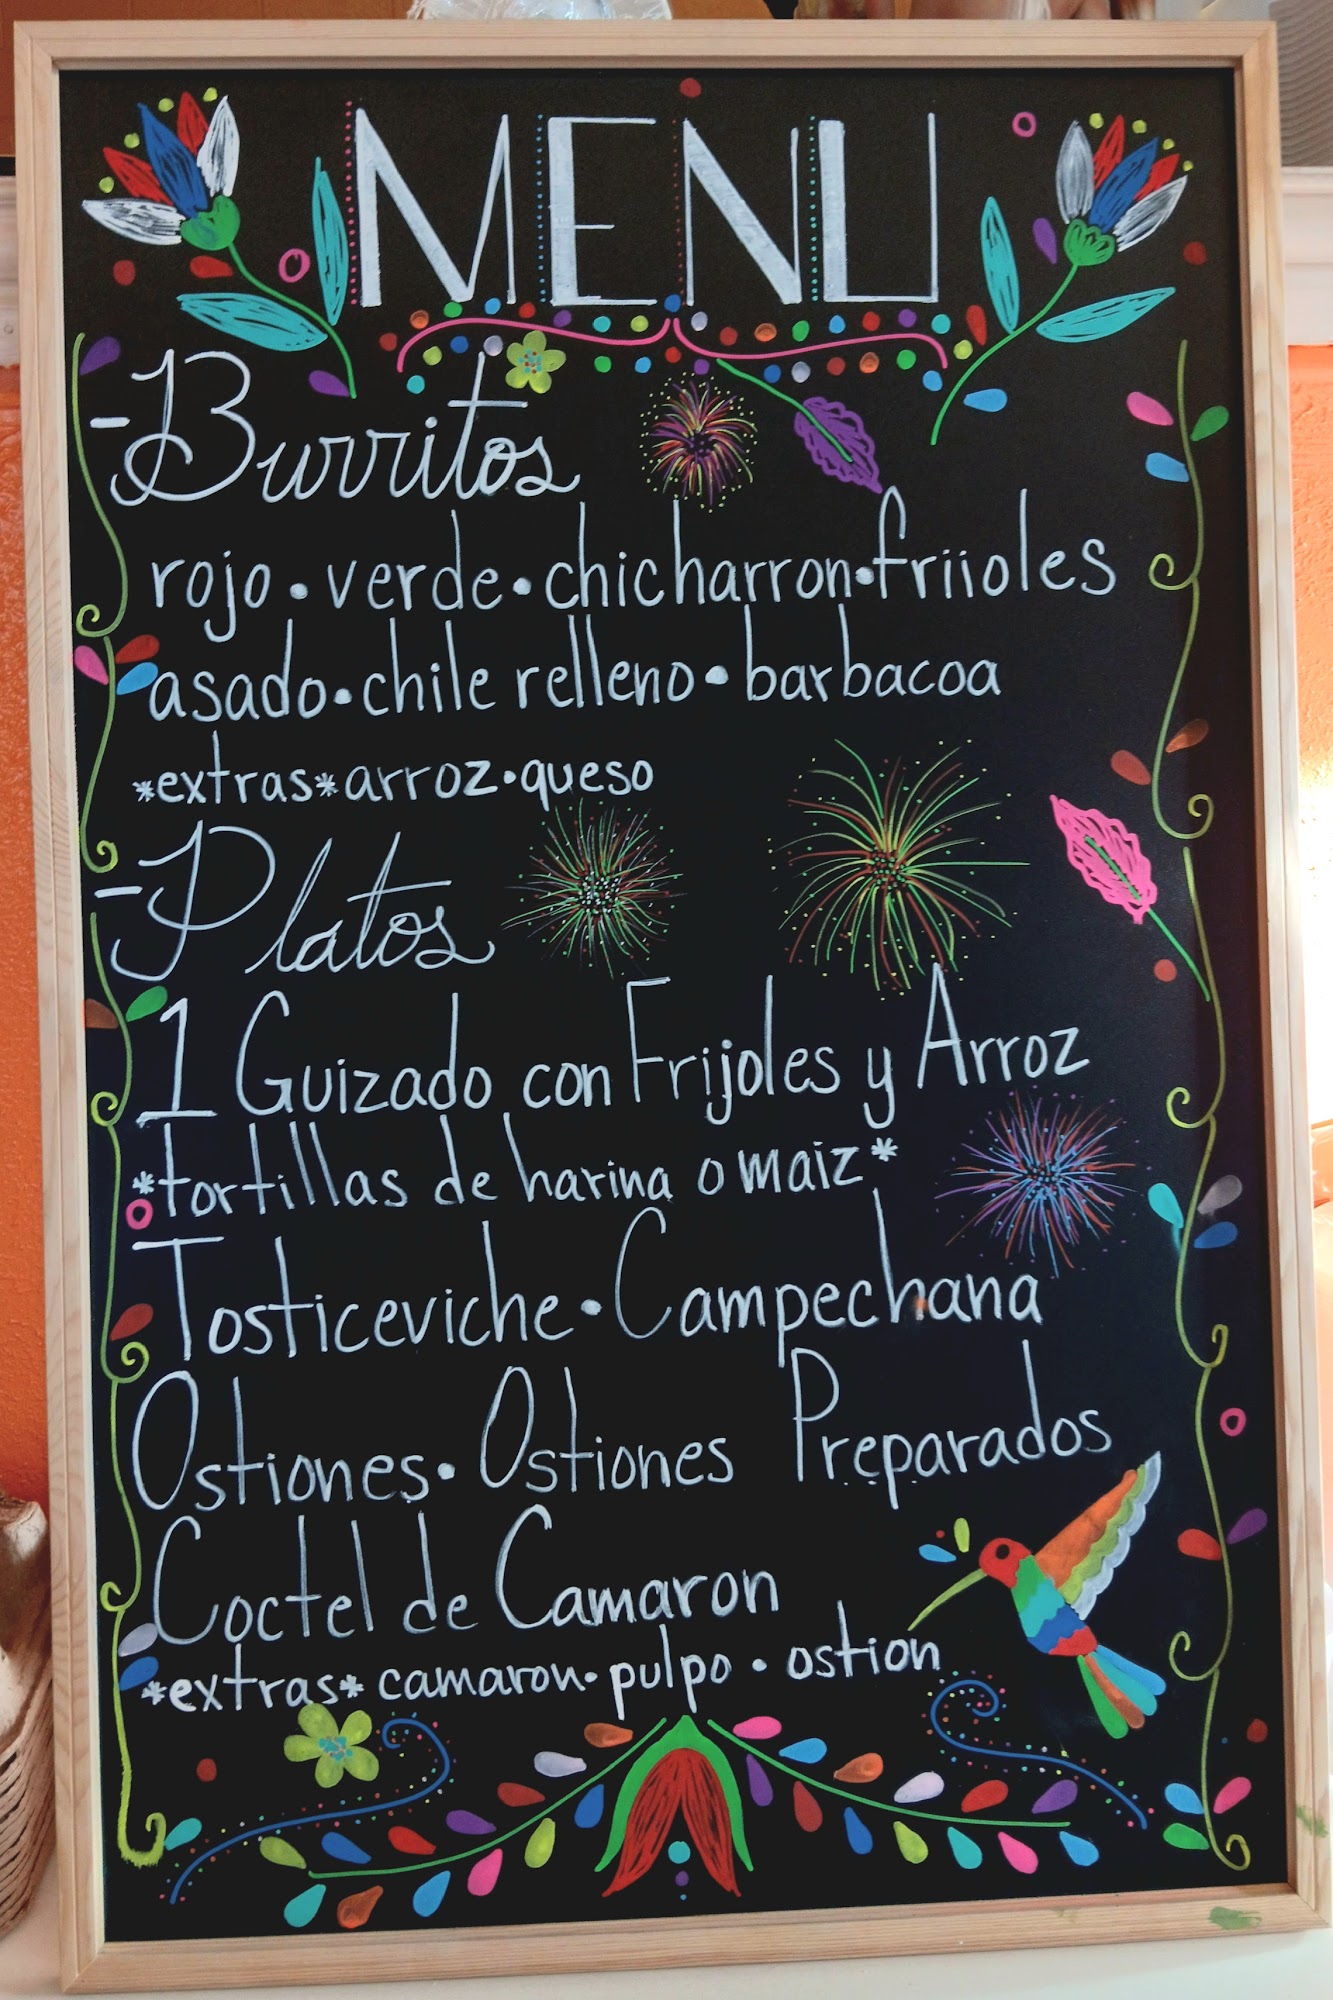 MENU
-Burritos
rojo • verde • chicharron • friioles
asado • chile relleno • barbacoa
*extras* arroz • queso
-Platos
1 Guizado con Frijoles y Arroz
*tortillas de harina o maiz*
Tosticeviche • Campechana
Ostiones • Ostiones Preparados
Coctel de Camaron
*extras* camaron • pulpo • ostion